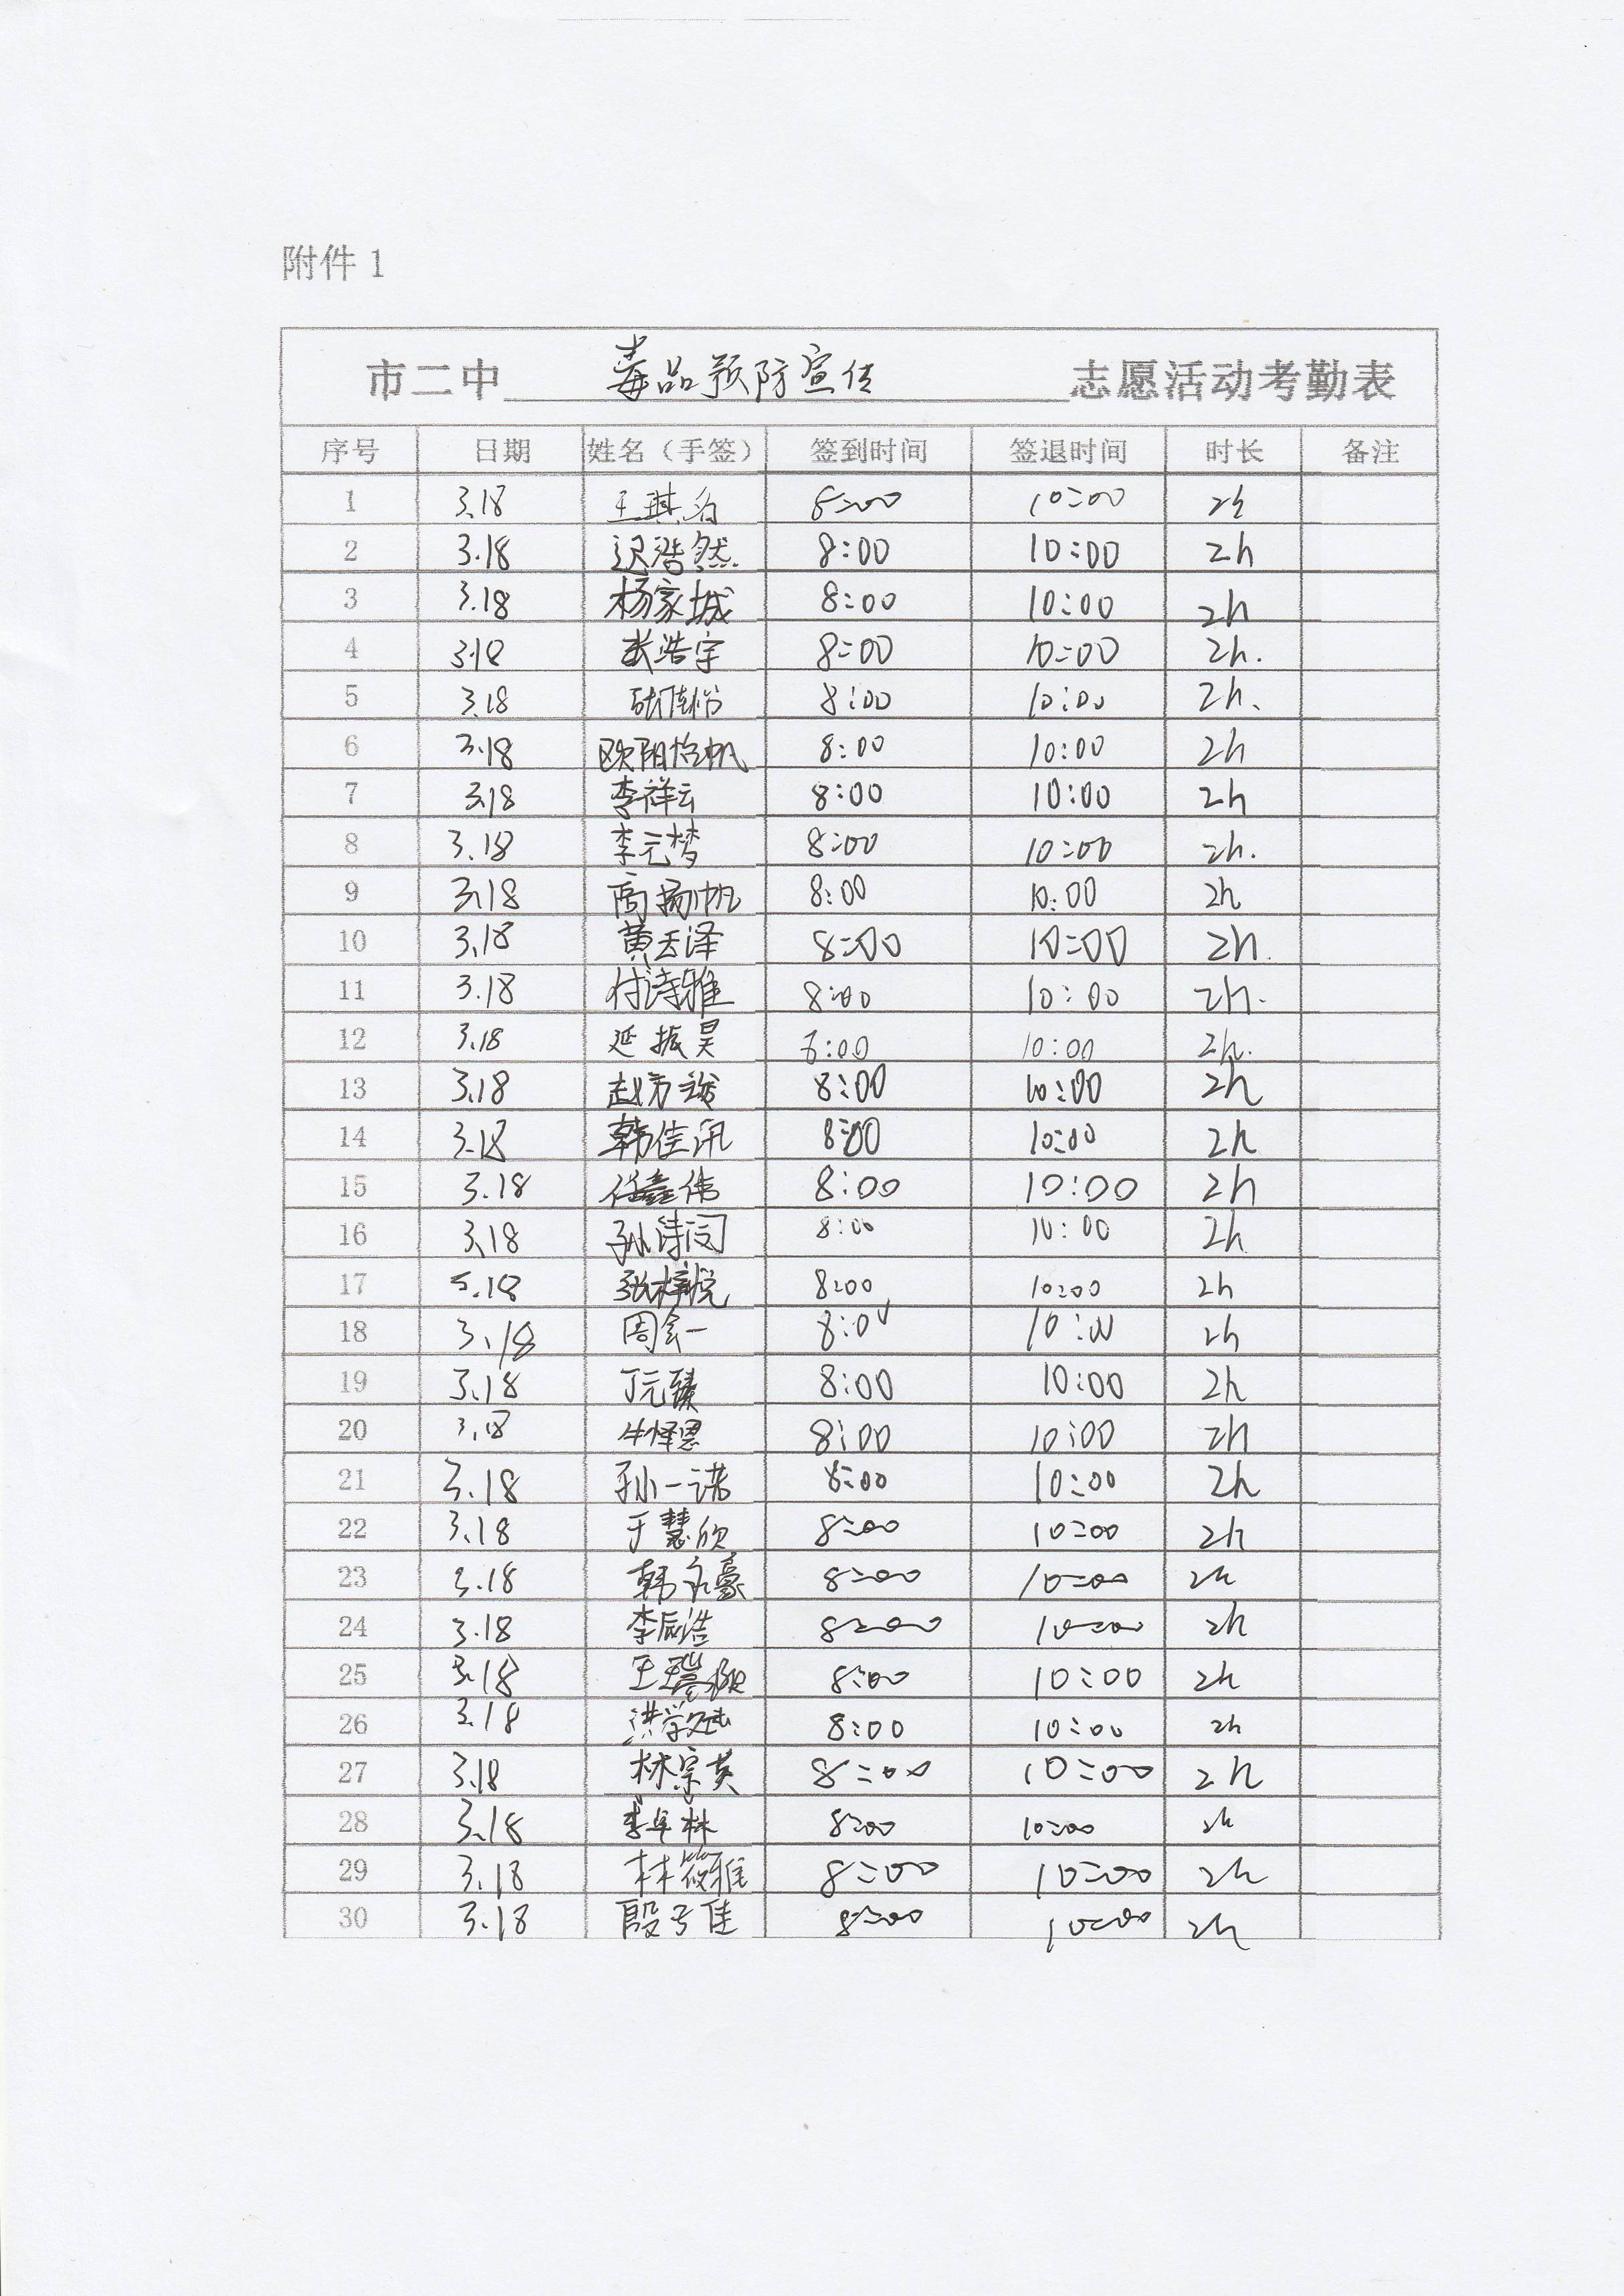 附件 1
市二中 毒品预防宣传 志愿活动考勤表
序号 日期 姓名（手签） 签到时间 签退时间 时长 备注
1 3.18 王琪名 8:00 10:00 2h
2 3.18 迟浩然 8:00 10:00 2h
3 3.18 杨家城 8:00 10:00 2h
4 3.18 张浩宇 8:00 10:00 2h.
5 3.18 8:00 10:00 2h.
6 3.18 欧阳怡帆 8:00 10:00 2h
7 3.18 李祥云 8:00 10:00 2h
8 3.18 李元梦 8:00 10:00 2h.
9 3.18 高扬帆 8:00 10:00 2h
10 3.18 黄天泽 8:00 10:00 2h.
11 3.18 付诗雅 8:00 10:00 2h.
12 3.18 延振昊 8:00 10:00 2h.
13 3.18 8:00 10:00 2h
14 3.18 韩佳讯 8:00 10:00 2h
15 3.18 任鑫伟 8:00 10:00 2h
16 3.18 孙诗闵 8:00 10:00 2h
17 3.18 张梓悦 8:00 10:00 2h
18 3.18 周会一 8:00 10:00 2h
19 3.18 丁元臻 8:00 10:00 2h
20 3.18 牛怿恩 8:00 10:00 2h
21 3.18 孙一诺 8:00 10:00 2h
22 3.18 于慧欣 8:00 10:00 2h
23 3.18 韩永豪 8:00 10:00 2h
24 3.18 李辰浩 8:00 10:00 2h
25 3.18 8:00 10:00 2h
26 3.18 8:00 10:00 2h
27 3.18 林宗英 8:00 10:00 2h
28 3.18 李卓林 8:00 10:00 2h
29 3.18 林筱雅 8:00 10:00 2h
30 3.18 殷子佳 8:00 10:00 2h